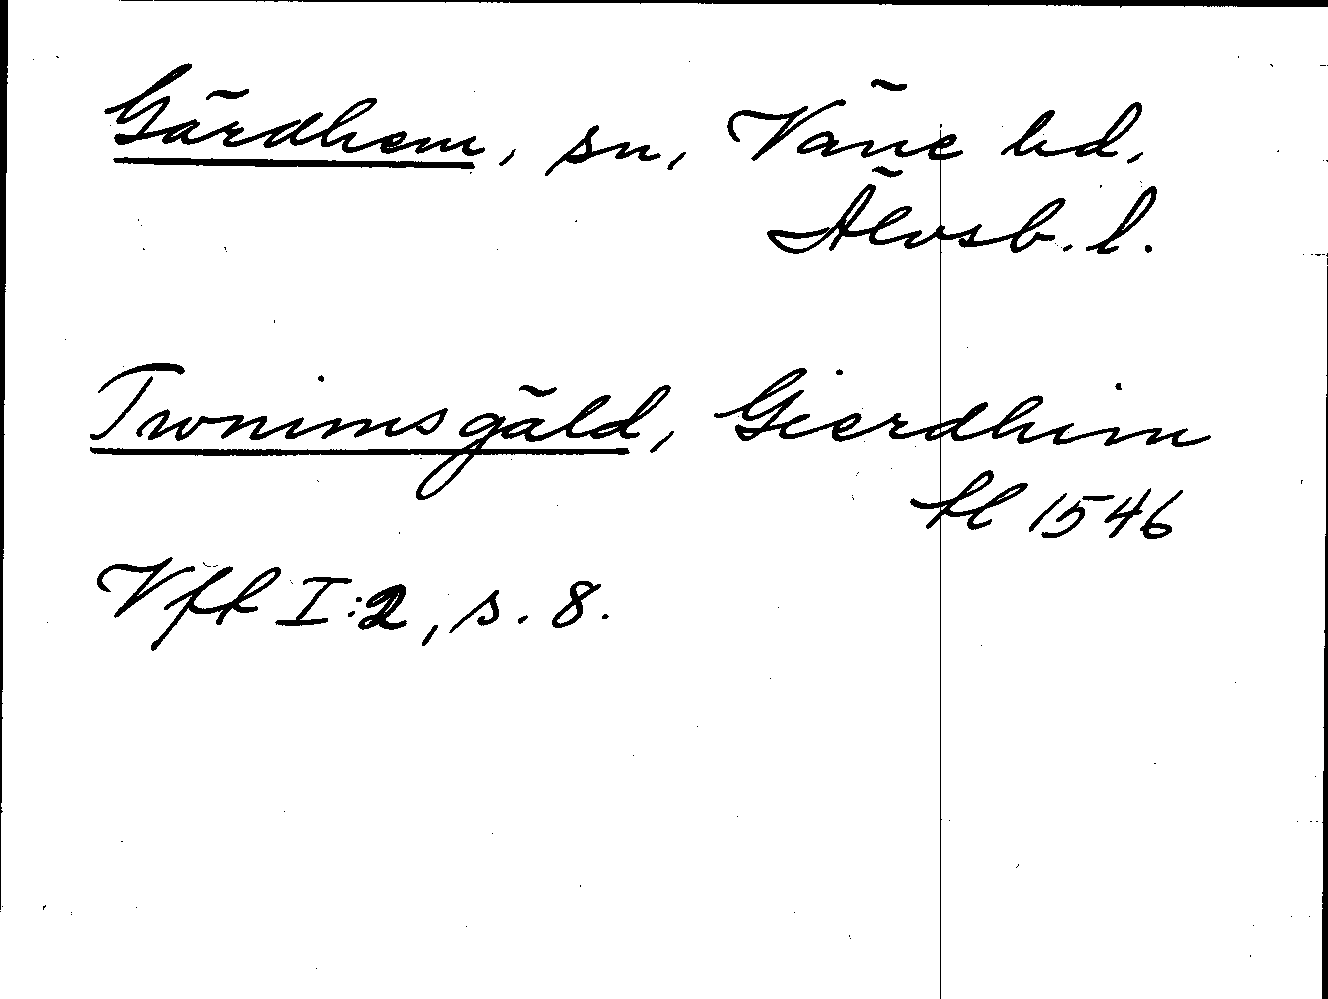 Gärdhem, sn, Väne hd,
Älvsb. l.
Twnimsgäld, Gierdhim
hl 1546
Vff I:2, s. 8.